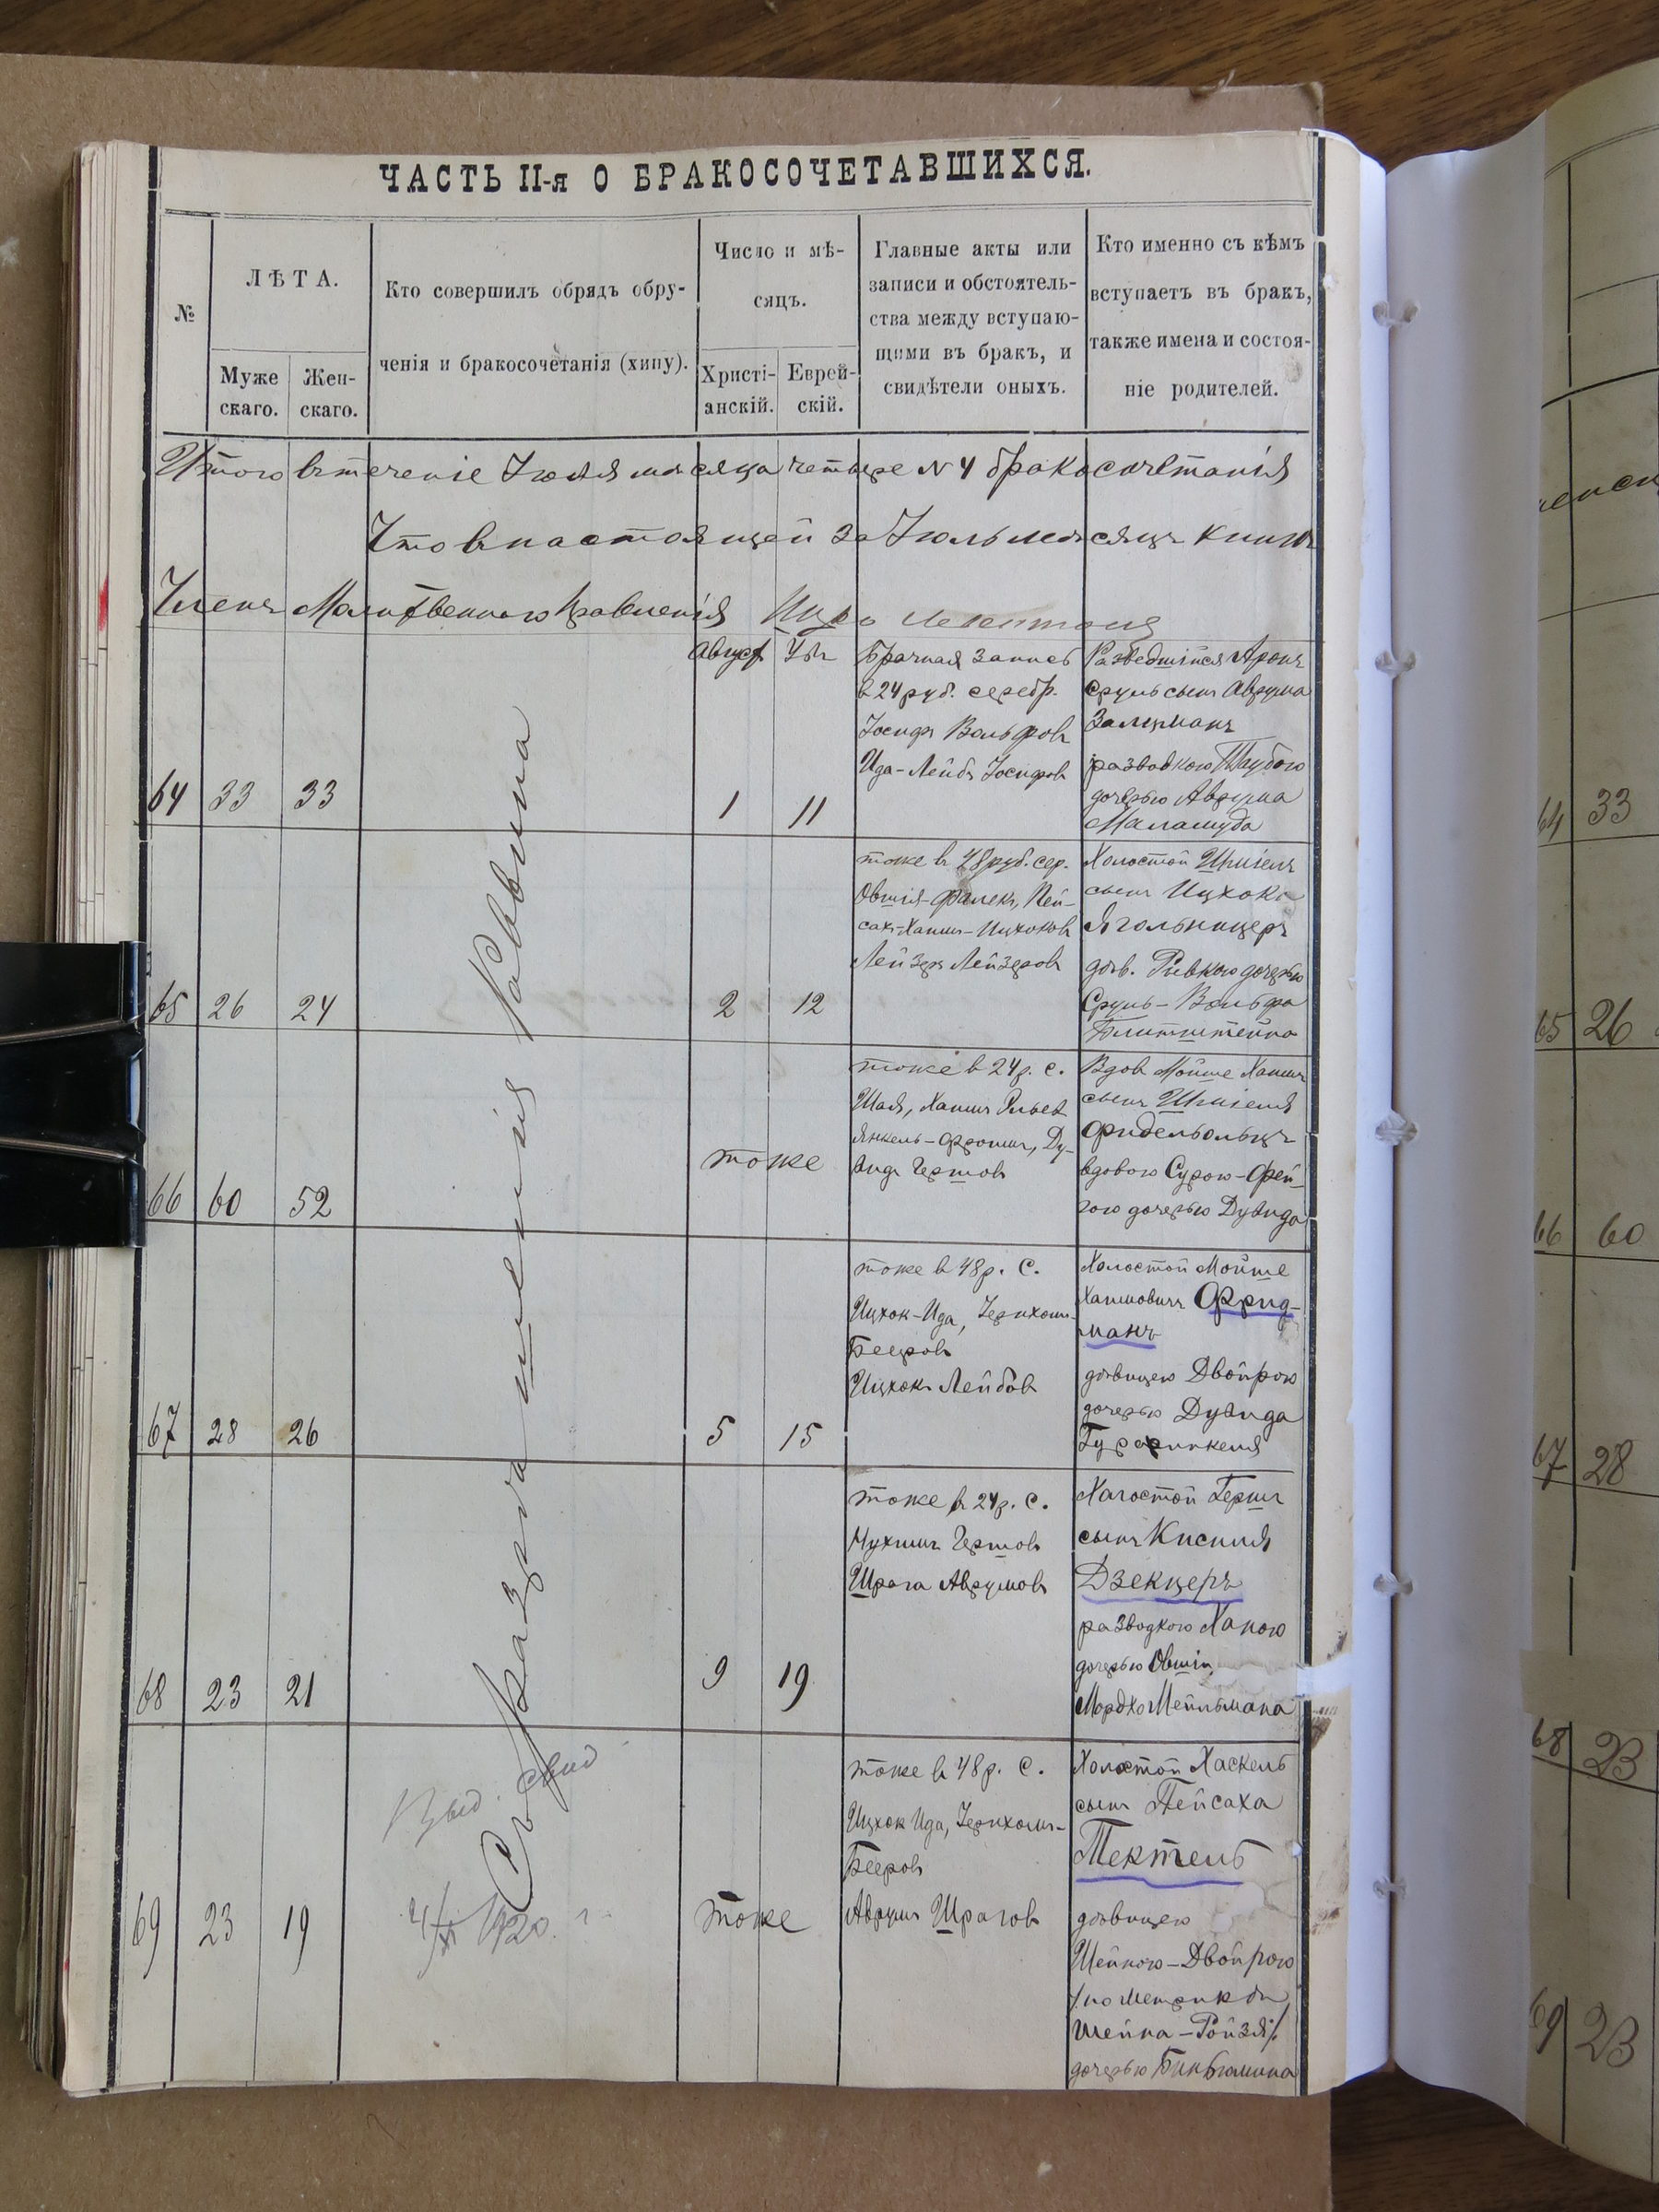 ЧАСТЬ II-я О БРАКОСОЧЕТАВШИХСЯ.
№
ЛѢТА.
Муже
скаго.
Жен-
скаго.
Кто совершилъ обрядъ обру-
ченія и бракосочетанія (хипу).
Число и мѣ-
сяцъ.
Христі-
анскій.
Еврей-
скій.
Главные акты или
записи и обстоятель-
ства между вступаю-
щими въ бракъ, и
свидѣтели оныхъ.
Кто именно съ кѣмъ
вступаетъ въ бракъ,
также имена и состоя-
ніе родителей.
Итого въ теченіе Іюля мѣсяца четыре № 4 бракосочетанія
Что въ настоящей за Іюль мѣсяцъ книгѣ
Членъ Молитвеннаго Правленія
Август
64 33 33
1 11
Брачная запись
в 24 руб. серебр.
Іосифъ Вольфовъ
Ида-Лейбъ Іосифовъ
Разведшійся Аронъ
Сруль сынъ Аврума
Залцманъ
разводкою Таубою
дочерью Аврума
Маламуда
65 26 24
2 12
тоже в 48 руб. сер.
Овшія-Фалекъ, Пей-
сахъ-Хаимъ-Ицхоковъ
Лейзеръ Лейзеровъ
Холостой Шміелъ
сынъ Ицхока
Ягольницеръ
дѣв. Ривкою дочерью
Сруль-Вольфа
Блитштейна
66 60 52
тоже
тоже в 24 р. с.
Шая, Хаимъ
Янкель-Фроимъ, Ду-
видъ Гершовъ
Вдов Мойше Хаимъ
сынъ Шміеля
Фидельгольцъ
вдовою Сурою-Фей-
гою дочерью Дувида
67 28 26
5 15
тоже в 48 р. с.
Ицхок-Ида, Іерихом-
Бееровъ
Ицхокъ Лейбовъ
Холостой Мойше
Хаимовичъ Фрид-
манъ
дѣвицею Двойрою
дочерью Дувида
Гурфинкеля
68 23 21
9 19
тоже в 24 р. с.
Нухимъ Гершовъ
Шрага Аврумовъ
Холостой Гершъ
сынъ Кисиля
Дзекцеръ
разводкою Ханою
дочерью Овшіи
Мордхо Мейльмана
69 23 19
тоже
тоже в 48 р. с.
Ицхок Ида, Іерихом-
Бееровъ
Аврумъ Шраговъ
Холостой Хаскель
сынъ Пейсаха
Тектель
дѣвицею
Шейною-Двойрою
/по метрикѣ
Шейна-Ройзя/
дочерью Биньюмина
Съ разрѣшенія Раввина
Выд. свид
1920 г.
64 33
65 26
66 60
67 28
68 23
69 23